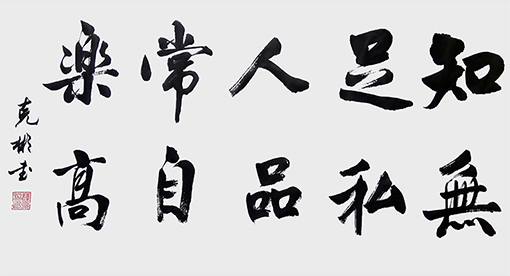 知足人常楽
無私品自高
克彬书